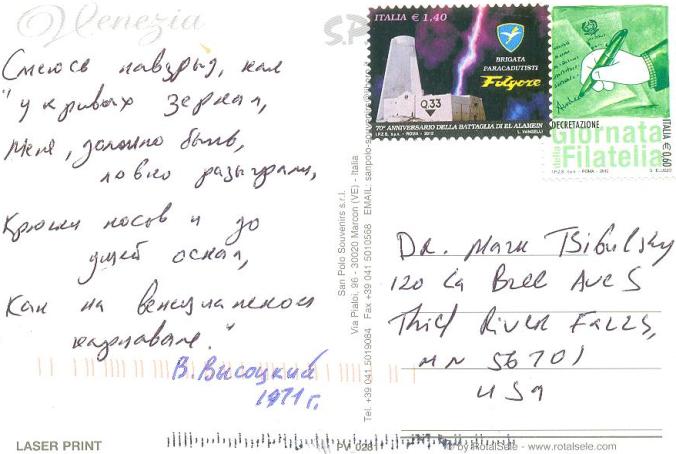 Venezia
Смеюсь навзрыд, как
"у кривых зеркал,
Меня, должно быть,
ловко разыграли,
Крючки носов и до
ушей оскал,
Как на венецианском
карнавале."
В. Высоцкий
1971 г.
LASER PRINT
San Polo Souvenirs s.r.l.
Via Pialoi, 96 - 30020 Marcon (VE) - Italia
Tel. +39 041 5019084 Fax +39 041 5010568 EMAIL: sanpolo
PV
by RotalSele - www.rotalsele.com
ITALIA € 1,40
BRIGATA
PARACADUTISTI
Folgore
Q.33
70° ANNIVERSARIO DELLA BATTAGLIA DI EL ALAMEIN
I.P.Z.S. S.p.A. - ROMA - 2012
L. VANGELLI
DECRETAZIONE
Giornata
della Filatelia
ITALIA € 0,60
I.P.Z.S. S.p.A. - ROMA - 2012
DR. Mark Tsibulsky
120 La Bree Ave S
Thief River Falls,
MN 56701
USA